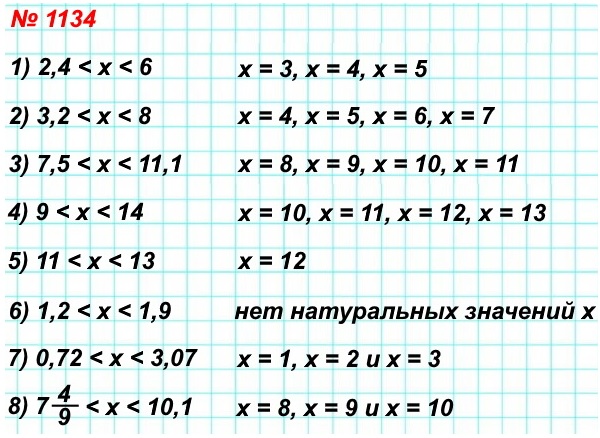 № 1134
1) 2,4 < x < 6 x = 3, x = 4, x = 5
2) 3,2 < x < 8 x = 4, x = 5, x = 6, x = 7
3) 7,5 < x < 11,1 x = 8, x = 9, x = 10, x = 11
4) 9 < x < 14 x = 10, x = 11, x = 12, x = 13
5) 11 < x < 13 x = 12
6) 1,2 < x < 1,9 нет натуральных значений x
7) 0,72 < x < 3,07 x = 1, x = 2 и x = 3
8) 7 4/9 < x < 10,1 x = 8, x = 9 и x = 10